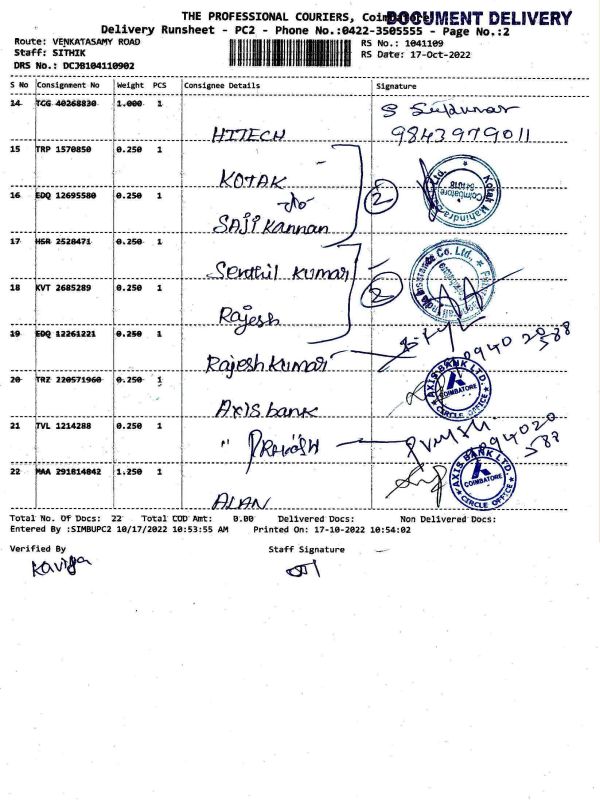 THE PROFESSIONAL COURIERS, Coimbatore
DOCUMENT DELIVERY
Delivery Runsheet - PC2 - Phone No.:0422-3505555 - Page No.:2
Route: VENKATASAMY ROAD
RS No.: 1041109
Staff: SITHIK
RS Date: 17-Oct-2022
DRS No.: DCJB104110902
S No Consignment No Weight PCS Consignee Details Signature
14 TCG 40268830 1.000 1
HITECH
9843979011
15 TRP 1570850 0.250 1
KOTAK
16 EDQ 12695580 0.250 1
2
Kotak Mahindra Ltd. Coimbatore 641018
SAJi Kannan
17 HSR 2528471 0.250 1
Senthil Kumar
18 KVT 2685289 0.250 1
2
India Insurance Co. Ltd.
Rajesh
19 EDQ 12261221 0.250 1
Rajesh Kumar
20 TRZ 220571960 0.250 1
AXIS BANK LTD. COIMBATORE CIRCLE OFFICE
Axis bank
21 TVL 1214288 0.250 1
" PRAKASH
094020
588
22 MAA 291814842 1.250 1
AXIS BANK LTD. COIMBATORE CIRCLE OFFICE
ALAN
Total No. Of Docs: 22 Total COD Amt: 0.00 Delivered Docs: Non Delivered Docs:
Entered By :SIMBUPC2 10/17/2022 10:53:55 AM Printed On: 17-10-2022 10:54:02
Verified By Staff Signature
Kaviya